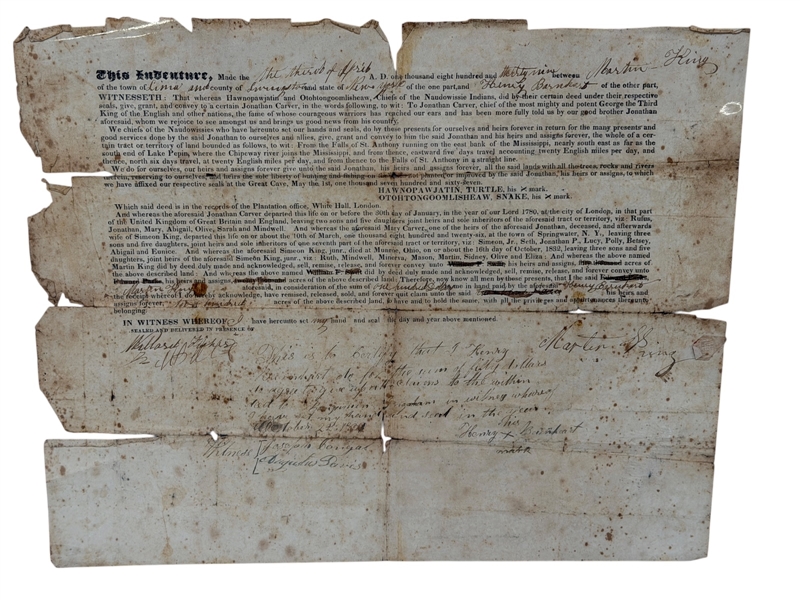 This Indenture, Made the third of April A. D. one thousand eight hundred and thirty nine between Martin King
of the town of Lima and county of Livingston and state of New York of the one part, and Henry Barnhart of the other part,
WITNESSETH: That whereas Hawnopawjatin and Otohtongoomlisheaw, Chiefs of the Nandowissie Indians, did by their certain deed under their respective
seals, give, grant, and convey to a certain Jonathan Carver, in the words following, to wit: To Jonathan Carver, chief of the most mighty and potent George the Third
King of the English and other nations, the fame of whose courageous warriors has reached our ears and has been more fully told us by our good brother Jonathan
aforesaid, whom we rejoice to see amongst us and brings us good news from his country.
We chiefs of the Naudowissies who have hereunto set our hands and seals, do by these presents for ourselves and heirs forever in return for the many presents and
good services done by the said Jonathan to ourselves and allies, give, grant and convey to him the said Jonathan and his heirs and assigns forever, the whole of a cer-
tain tract or territory of land bounded as follows, to wit: From the Falls of St. Anthony running on the east bank of the Mississippi, nearly south east as far as the
south end of Lake Pepin, where the Chipeway river joins the Mississippi, and from thence, eastward five days travel accounting twenty English miles per day, and
thence, north six days travel, at twenty English miles per day, and from thence to the Falls of St. Anthony in a straight line.
We do for ourselves, our heirs and assigns forever give unto the said Jonathan, his heirs and assigns forever, all the said lands with all the trees, rocks and rivers
therein, reserving to ourselves and heirs the sole liberty of hunting and fishing on land not planned or improved by the said Jonathan, his heirs or assigns, to which
we have affixed our respective seals at the Great Cave, May the 1st, one thousand seven hundred and sixty-seven.
HAWNOPAWJATIN, TURTLE, his × mark.
OTOHTONGOOMLISHEAW, SNAKE, his × mark.
Which said deed is in the records of the Plantation office, White Hall, London.
And whereas the aforesaid Jonathan Carver departed this life on or before the 30th of January, in the year of our Lord 1780, at the city of London, in that part
of the United Kingdom of Great Britain and England, leaving two sons and five daughters joint heirs and sole inheritors of the aforesaid tract or territory, viz: Rufus,
Jonathan, Mary, Abigail, Olive, Sarah and Mindwell. And whereas the aforesaid Mary Carver, one of the heirs of the aforesaid Jonathan, deceased, and afterwards
wife of Simeon King, departed this life on or about the 10th of March, one thousand eight hundred and twenty-six, at the town of Springwater, N. Y., leaving three
sons and five daughters, joint heirs and sole inheritors of one seventh part of the aforesaid tract or territory, viz: Simeon, Jr., Seth, Jonathan P., Lucy, Polly, Betsey,
Abigail and Eunice. And whereas the aforesaid Simeon King, junr., died at Muncie, Ohio, on or about the 16th day of October, 1832, leaving three sons and five
daughters, joint heirs of the aforesaid Simeon King, junr., viz: Ruth, Mindwell, Minerva, Mason, Martin, Sidney, Olive and Eliza: And whereas the above named
Martin King did by deed duly made and acknowledged, sell, remise, release, and forever convey unto his heirs and assigns, acres of
the above described land: And whereas the above named did by deed duly made and acknowledged, sell, remise, release, and forever convey unto
his heirs and assigns acres of the above described land. Therefore, now know all men be these presents, that I the said
Martin King aforesaid, in consideration of the sum of one hundred dollars in hand paid by the aforesaid Henry Barnhart
the receipt whereof I do hereby acknowledge, have remised, released, sold, and forever quit claim unto the said his heirs and
assigns forever, hundred acres of the above described land, to have and to hold the same, with all the privileges and appurtenances thereunto
belonging.
IN WITNESS WHEREOF, I have hereunto set my hand and seal the day and year above mentioned.
SEALED AND DELIVERED IN PRESENCE OF
Martin King
This is to certify that I Henry
for the sum of fifty dollars
claims to the within
in witness whereof
I have set my hand and seal
October
his
Henry × Barnhart
mark
Witness Joseph
Augustus Davis